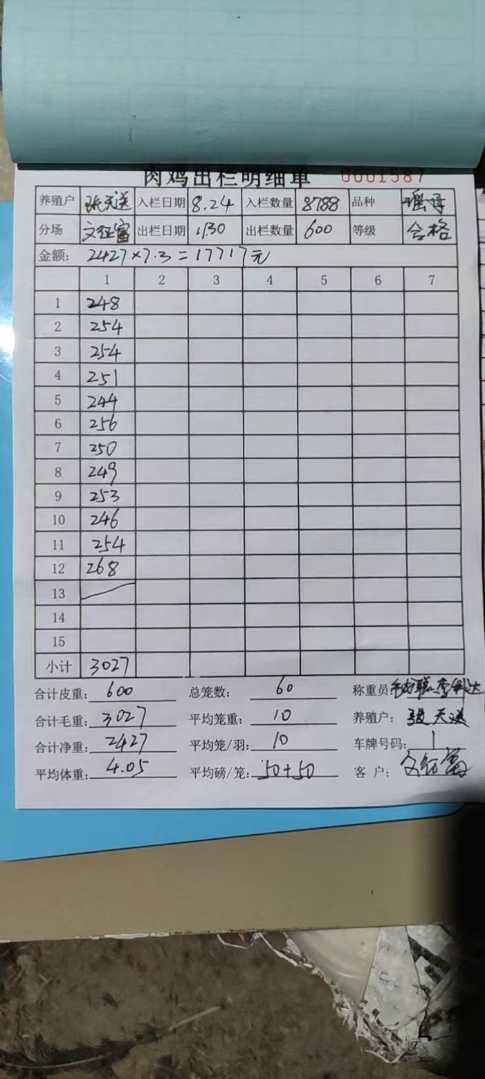 肉鸡出栏明细单 0001587
养殖户 张天送 入栏日期 8.24 入栏数量 8788 品种
分场 出栏日期 1.30 出栏数量 600 等级 合格
金额: 2427×7.3=17717元
1 2 3 4 5 6 7
1 248
2 254
3 254
4 251
5 244
6 256
7 250
8 249
9 253
10 246
11 254
12 268
13
14
15
小计 3027
合计皮重: 600 总笼数: 60 称重员
合计毛重: 3027 平均笼重: 10 养殖户: 张天送
合计净重: 2427 平均笼/羽: 10 车牌号码:
平均体重: 4.05 平均磅/笼: 50+50 客 户: